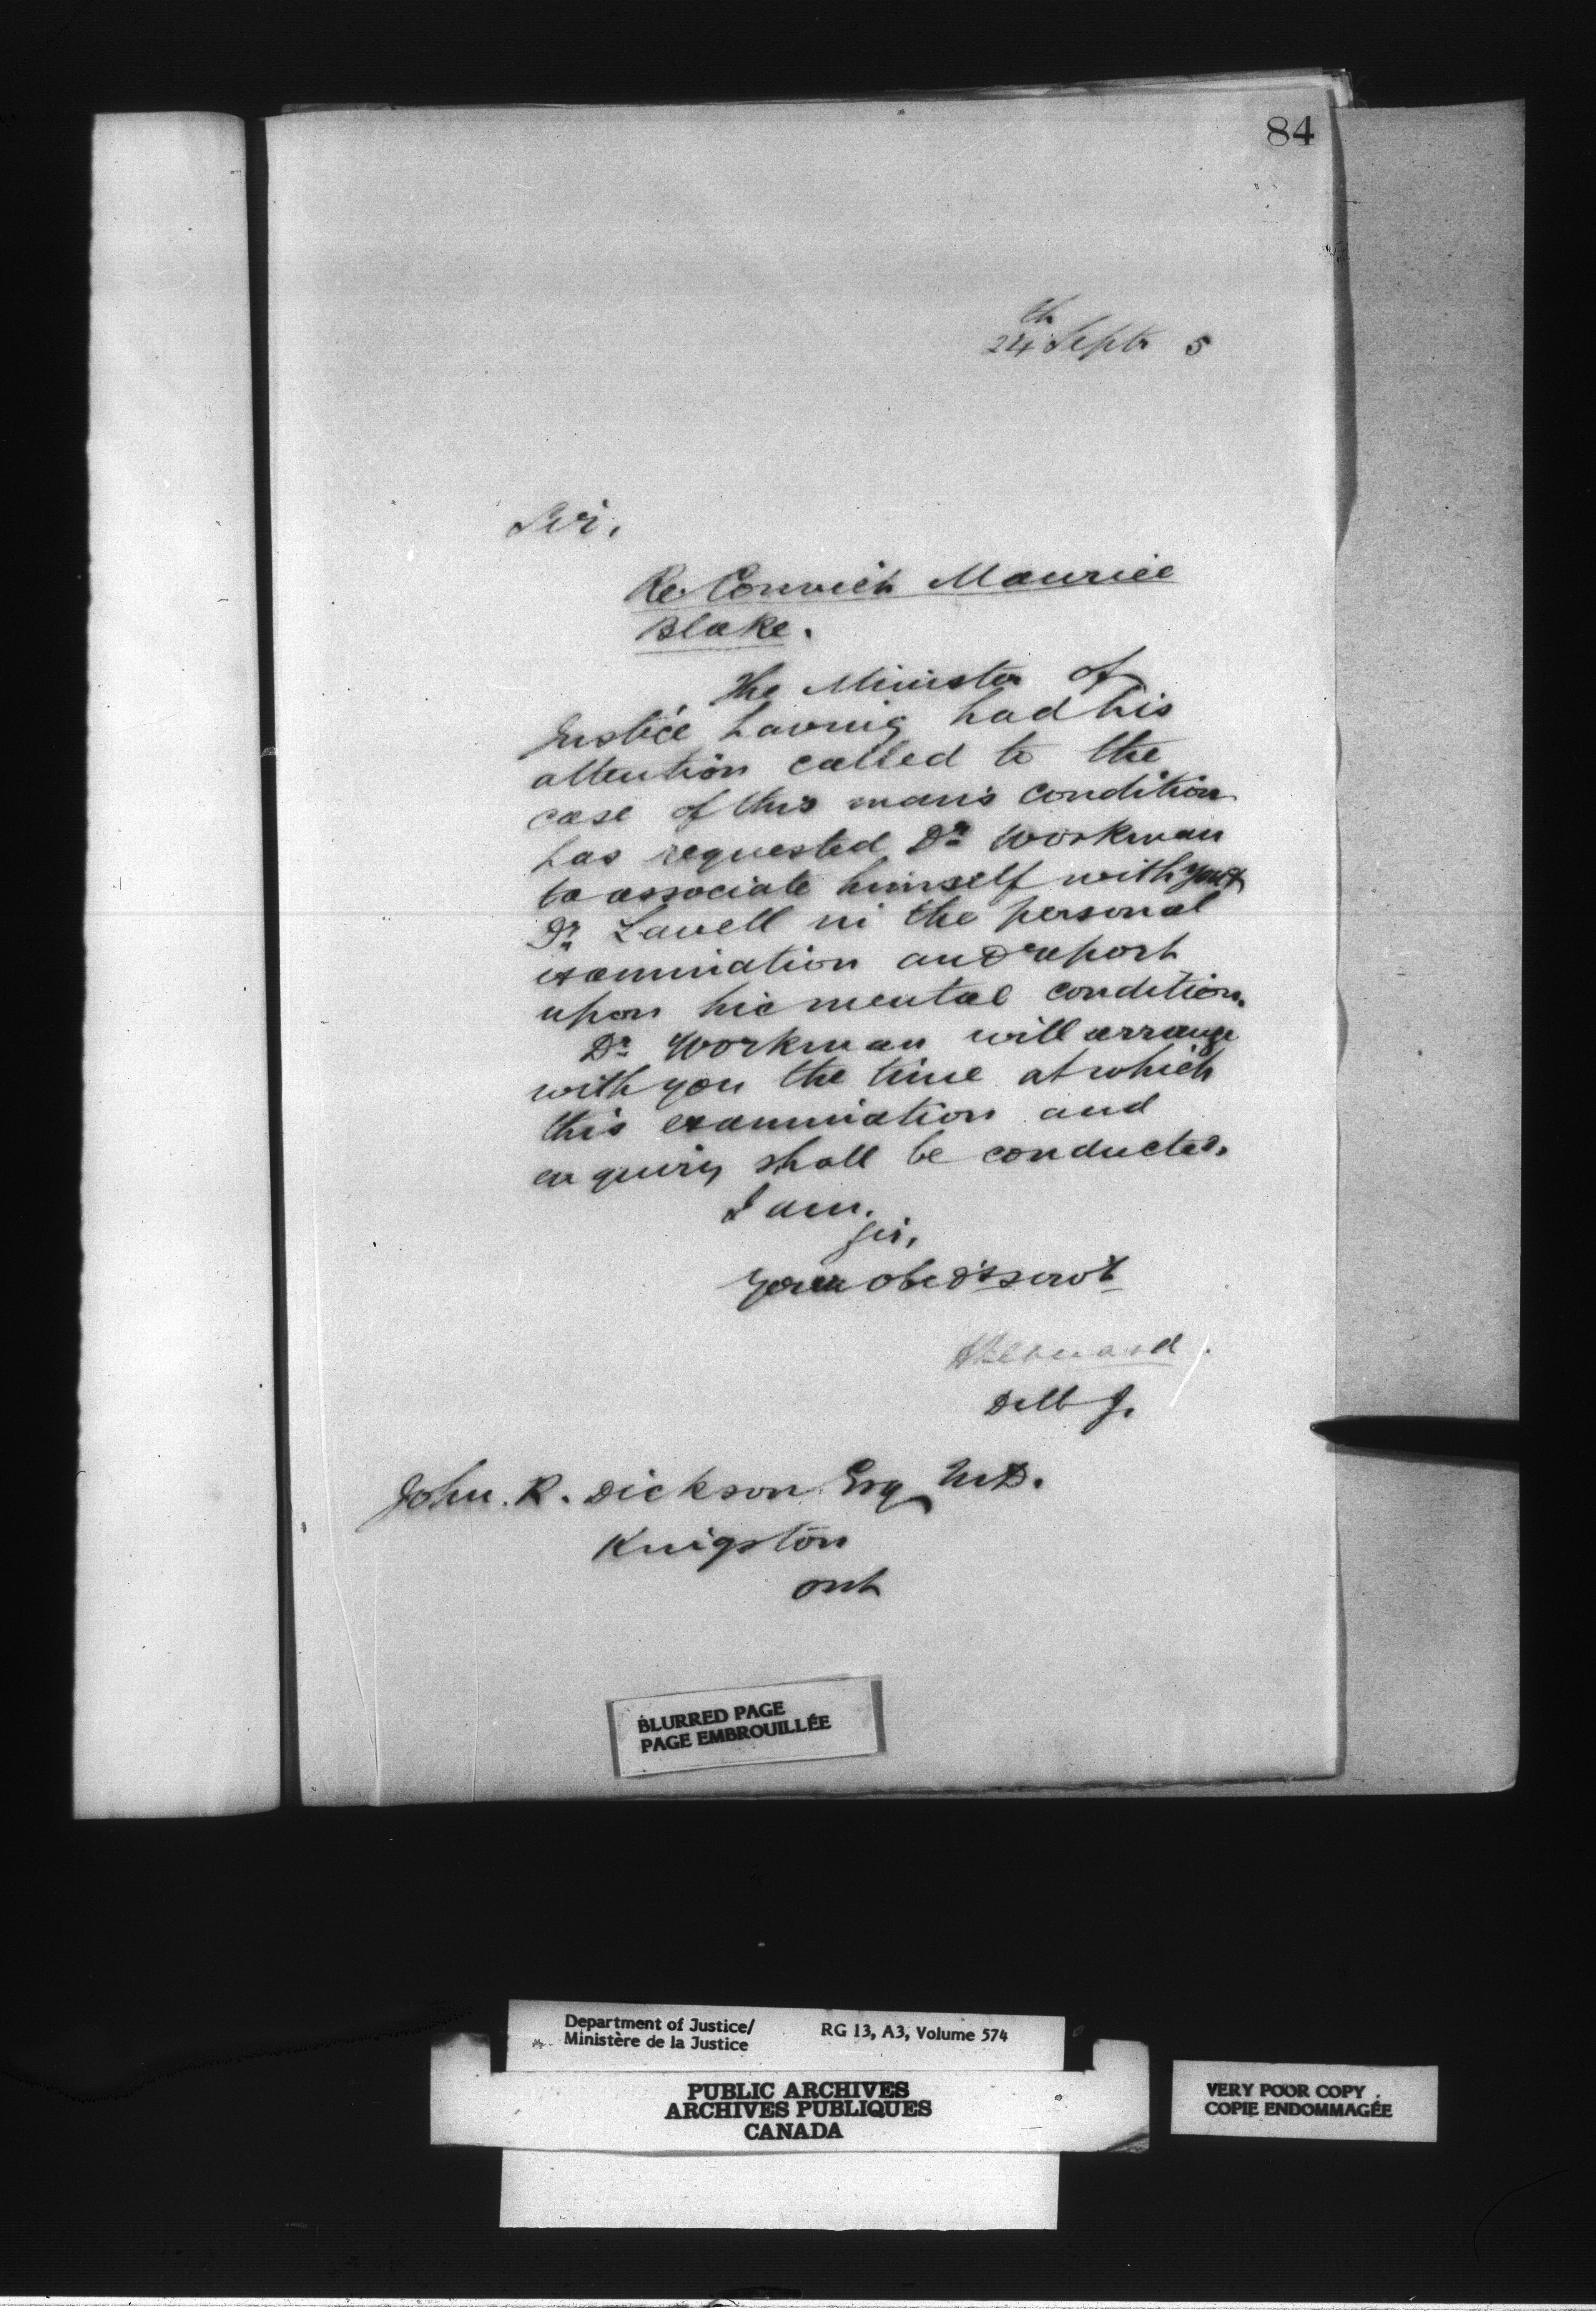 84
24th Septr 5
Sir,
Re Convict Maurice
Blake.
The Minister of
Justice having had his
attention called to the
case of this man's condition
has requested Dr Workman
to associate himself with you &
Dr Lavell in the personal
examination and report
upon his mental condition.
Dr Workman will arrange
with you the time at which
this examination and
enquiry shall be conducted.
I am,
Sir,
Your obedt servt
HBernard
DMJ.
John. R. Dickson Esq M.D.
Kingston
Ont
BLURRED PAGE
PAGE EMBROUILLÉE
Department of Justice/ RG 13, A3, Volume 574
Ministère de la Justice
PUBLIC ARCHIVES
ARCHIVES PUBLIQUES
CANADA
VERY POOR COPY
COPIE ENDOMMAGÉE